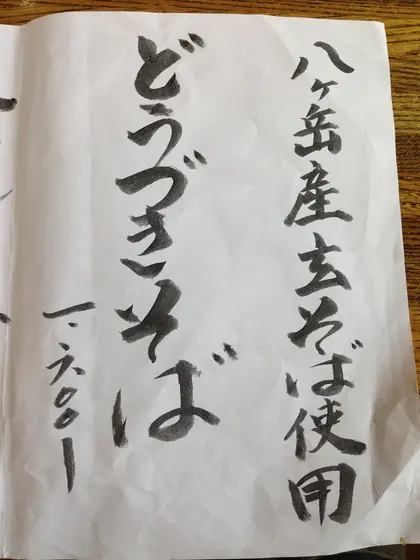 八ヶ岳産玄そば使用
どうづきそば
一、六〇〇ー